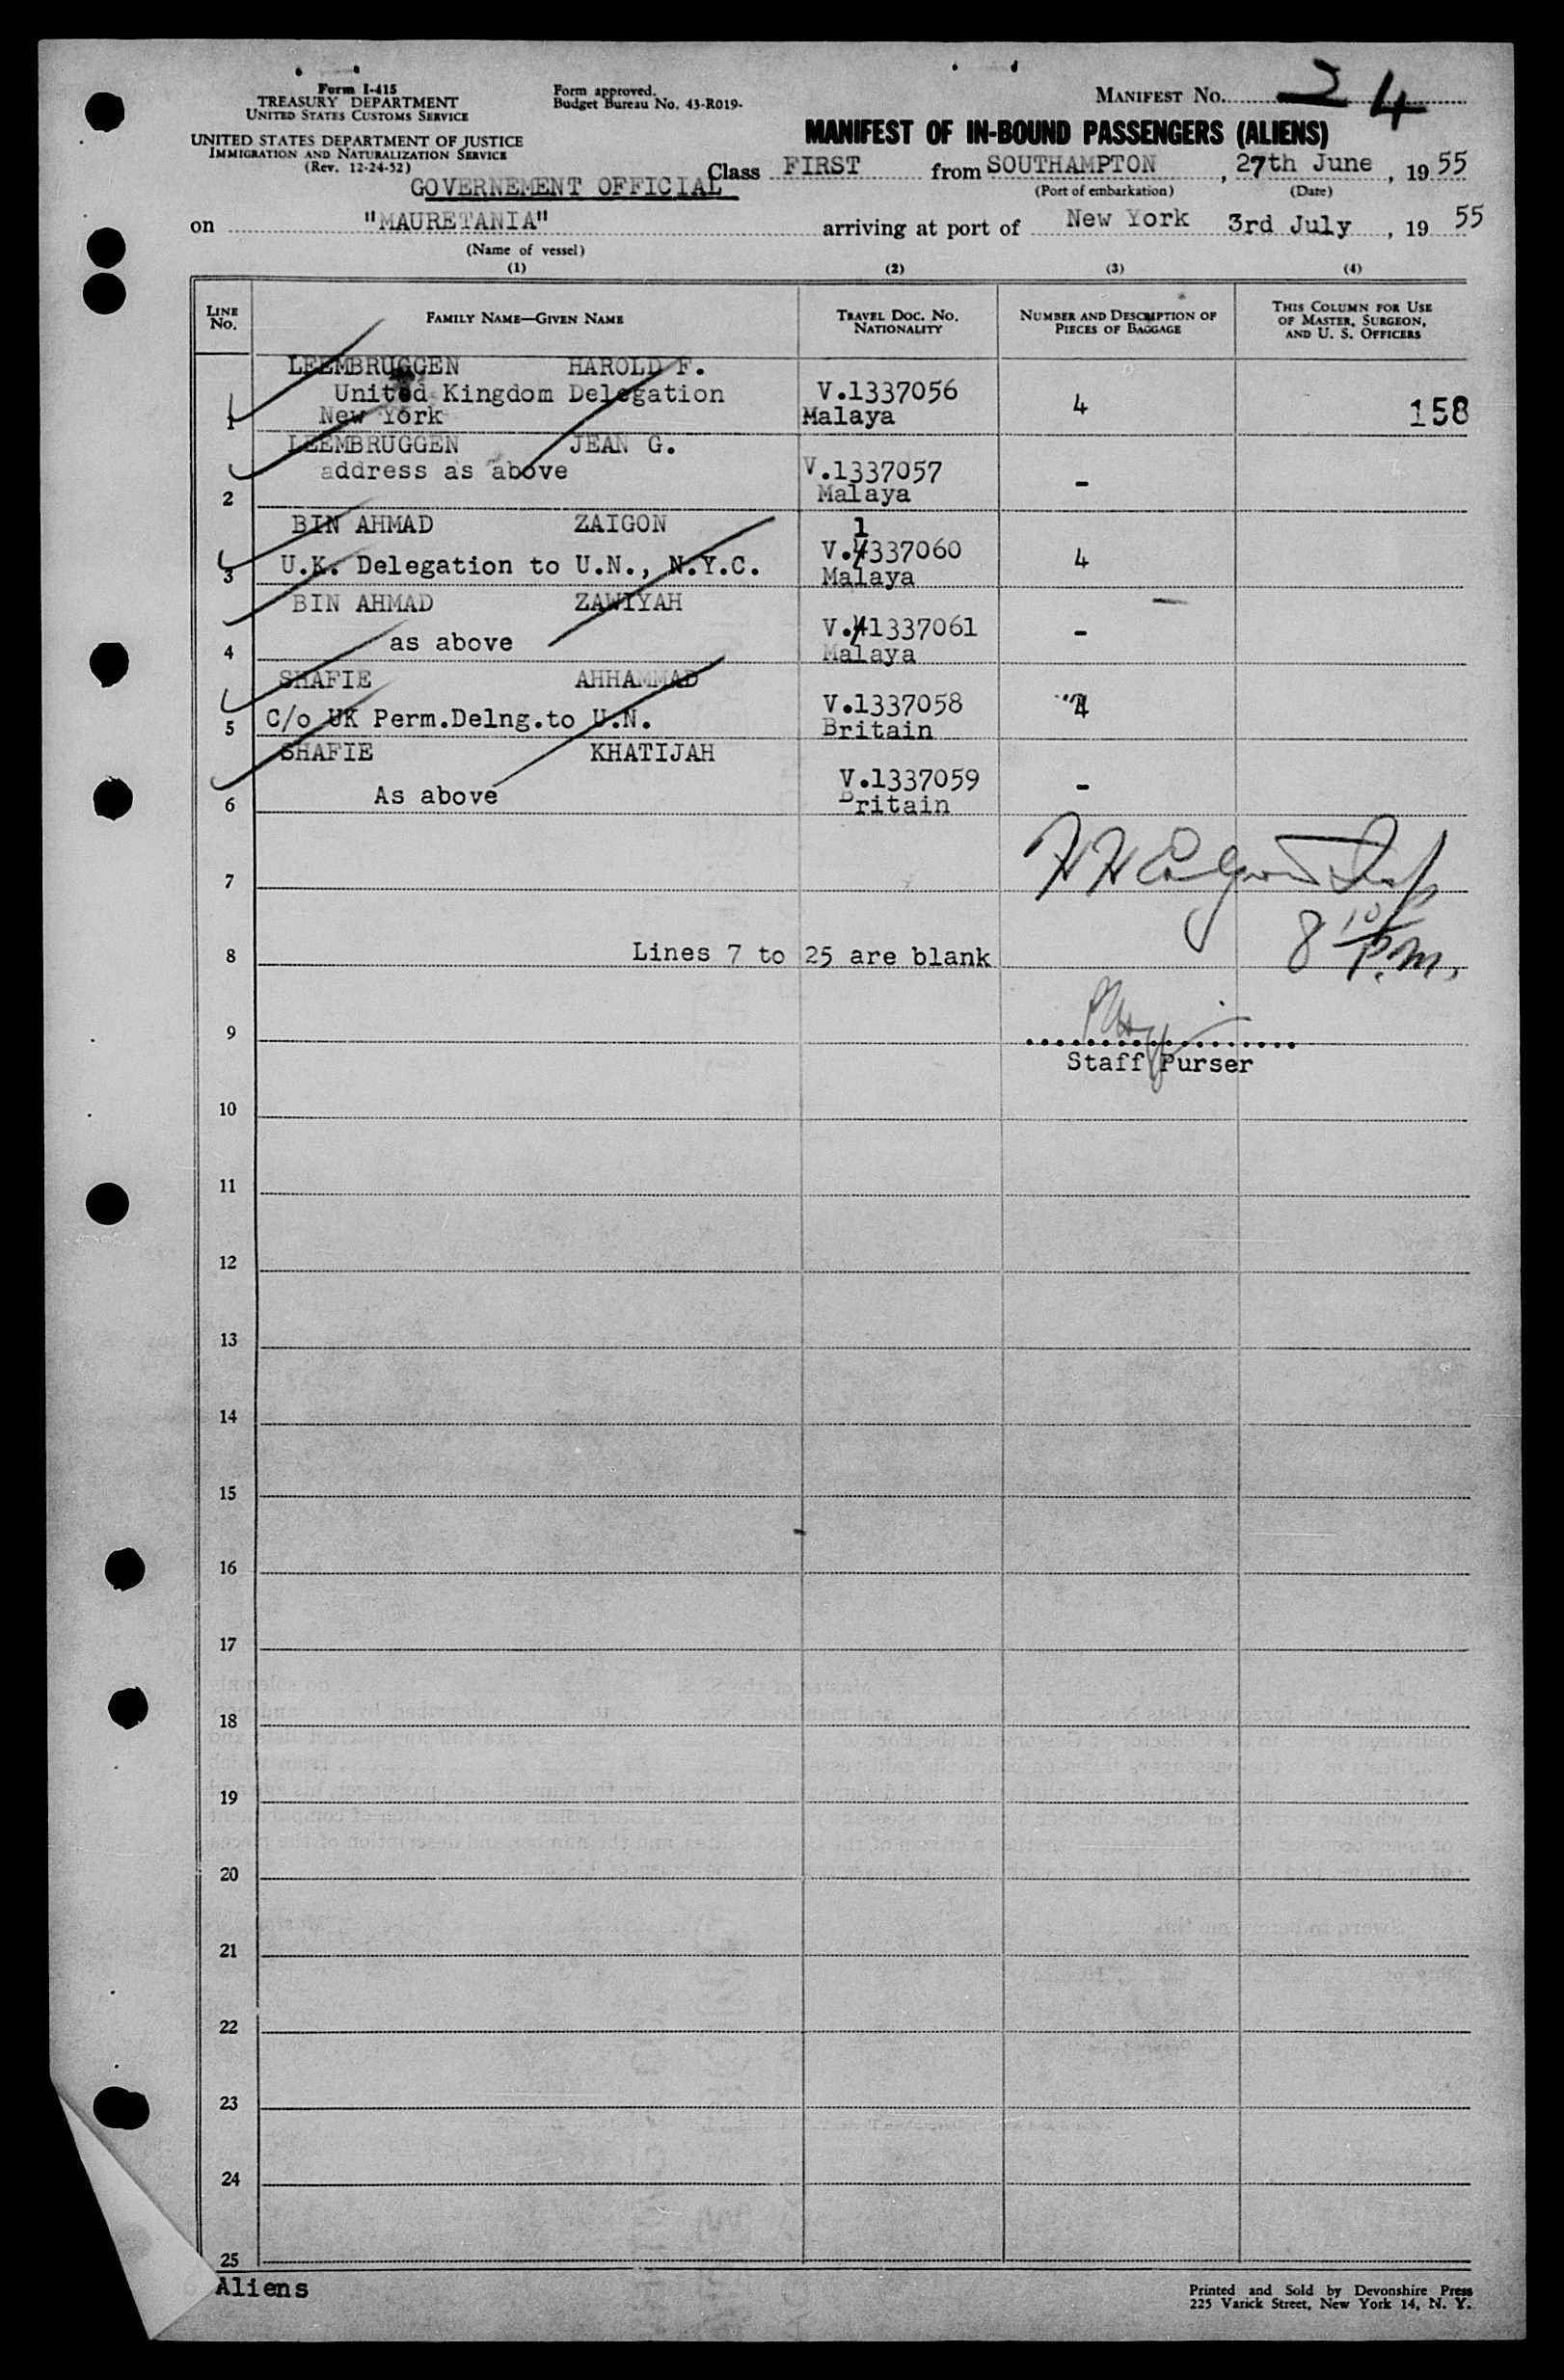 Form I-415
TREASURY DEPARTMENT
UNITED STATES CUSTOMS SERVICE
Form approved.
Budget Bureau No. 43-R019-
MANIFEST No. 24
UNITED STATES DEPARTMENT OF JUSTICE
IMMIGRATION AND NATURALIZATION SERVICE
(Rev. 12-24-52)
MANIFEST OF IN-BOUND PASSENGERS (ALIENS)
GOVERNEMENT OFFICIAL
Class FIRST from SOUTHAMPTON, 27th June, 1955
(Port of embarkation) (Date)
on "MAURETANIA" arriving at port of New York 3rd July, 1955
(Name of vessel)
(1) (2) (3) (4)
LINE No. FAMILY NAME—GIVEN NAME TRAVEL DOC. No. NATIONALITY NUMBER AND DESCRIPTION OF PIECES OF BAGGAGE THIS COLUMN FOR USE OF MASTER, SURGEON, AND U. S. OFFICERS
LEEMBRUGGEN HAROLD F.
United Kingdom Delegation V.1337056
1 New York Malaya 4 158
LEEMBRUGGEN JEAN G.
address as above V.1337057
2 Malaya -
BIN AHMAD ZAIGON 1
U.K. Delegation to U.N., N.Y.C. V.4337060 4
3 Malaya
BIN AHMAD ZAWIYAH
as above V.41337061 -
4 Malaya
SHAFIE AHHAMMAD
C/o UK Perm.Delng.to U.N. V.1337058 4
5 Britain
SHAFIE KHATIJAH
As above V.1337059 -
6 Britain
7
8 10 P.M.
8 Lines 7 to 25 are blank
9
Staff Purser
10
11
12
13
14
15
16
17
18
19
20
21
22
23
24
25
Aliens
Printed and Sold by Devonshire Press
225 Varick Street, New York 14, N. Y.